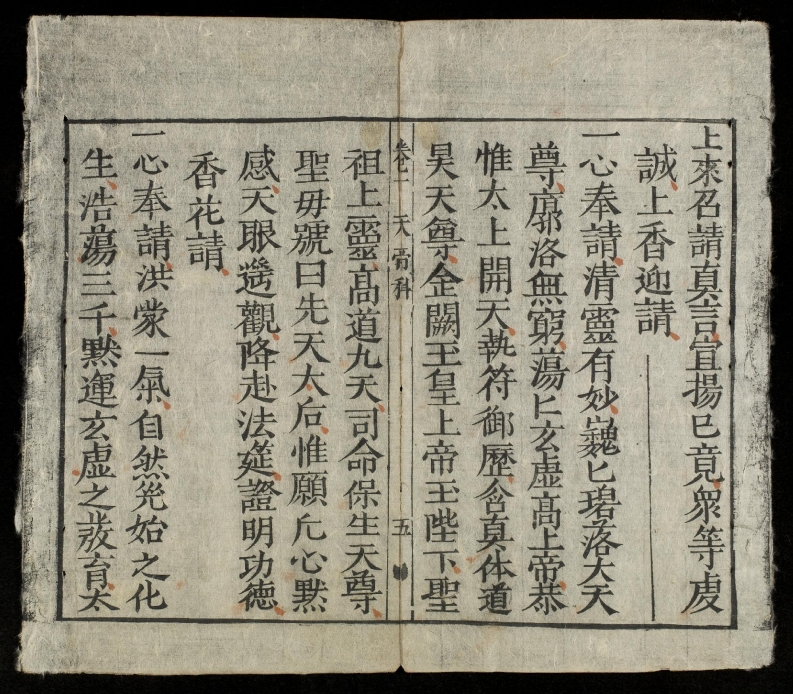 上來召請真言宣揚已竟衆等虔
誠上香迎請
一心奉請清靈有妙巍匕碧落大天
尊廓洛無窮蕩匕玄虛高上帝恭
惟太上開天執符御歷含真体道
昊天尊金闕玉皇上帝玉陛下聖
卷一 天𭏟科 五
祖上靈高道九天司命保生天尊
聖毋號曰先天太后惟願亢心黙
感天眼遥觀降赴法筵證明功德
香花請
一心奉請洪濛一氣自然兊始之化
生浩蕩三千黙運玄虛之發育太